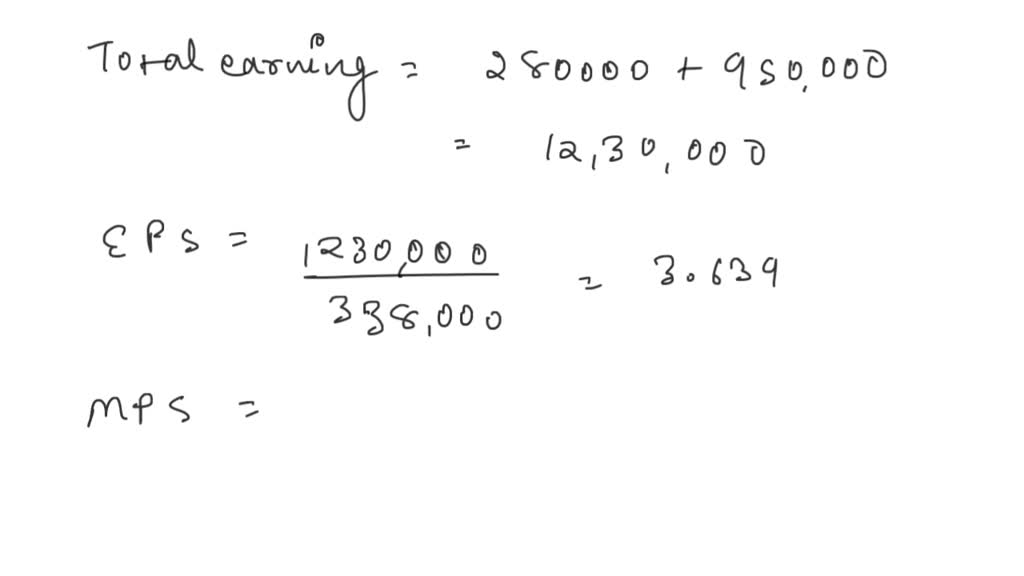 Total earning = 280000 + 950,000
= 12,30,000
EPS = 1230,000 / 338,000 = 3.639
MPS =